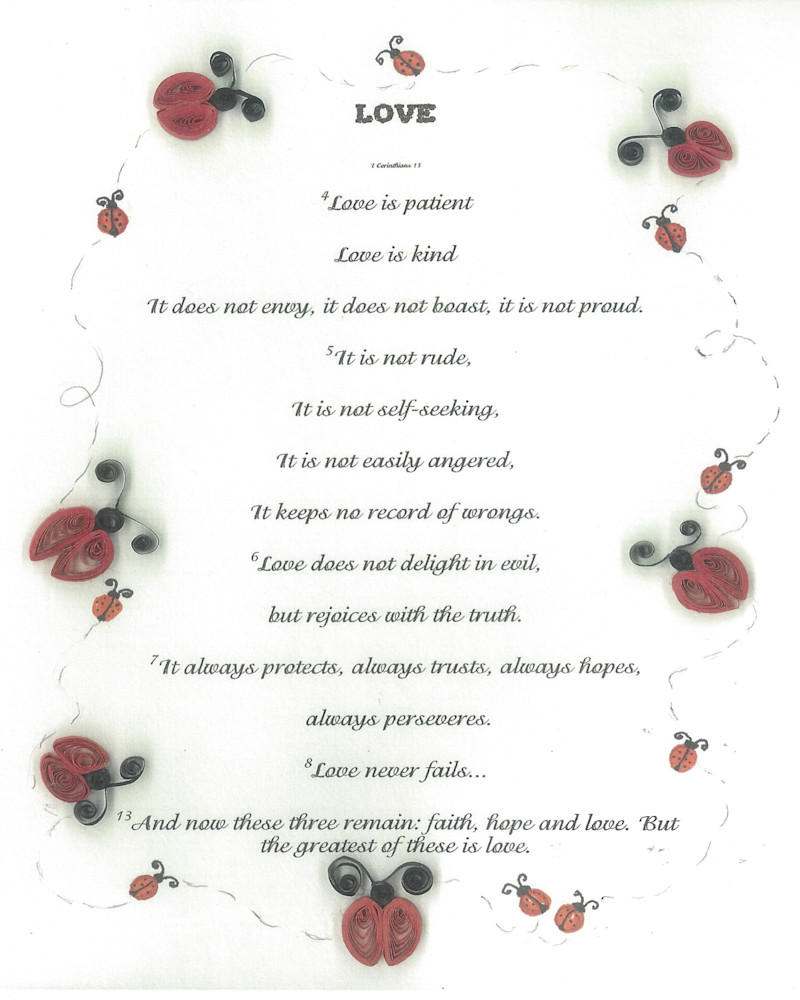 LOVE
1 Corinthians 13
4Love is patient
Love is kind
It does not envy, it does not boast, it is not proud.
5It is not rude,
It is not self-seeking,
It is not easily angered,
It keeps no record of wrongs.
6Love does not delight in evil,
but rejoices with the truth.
7It always protects, always trusts, always hopes,
always perseveres.
8Love never fails...
13And now these three remain: faith, hope and love. But
the greatest of these is love.